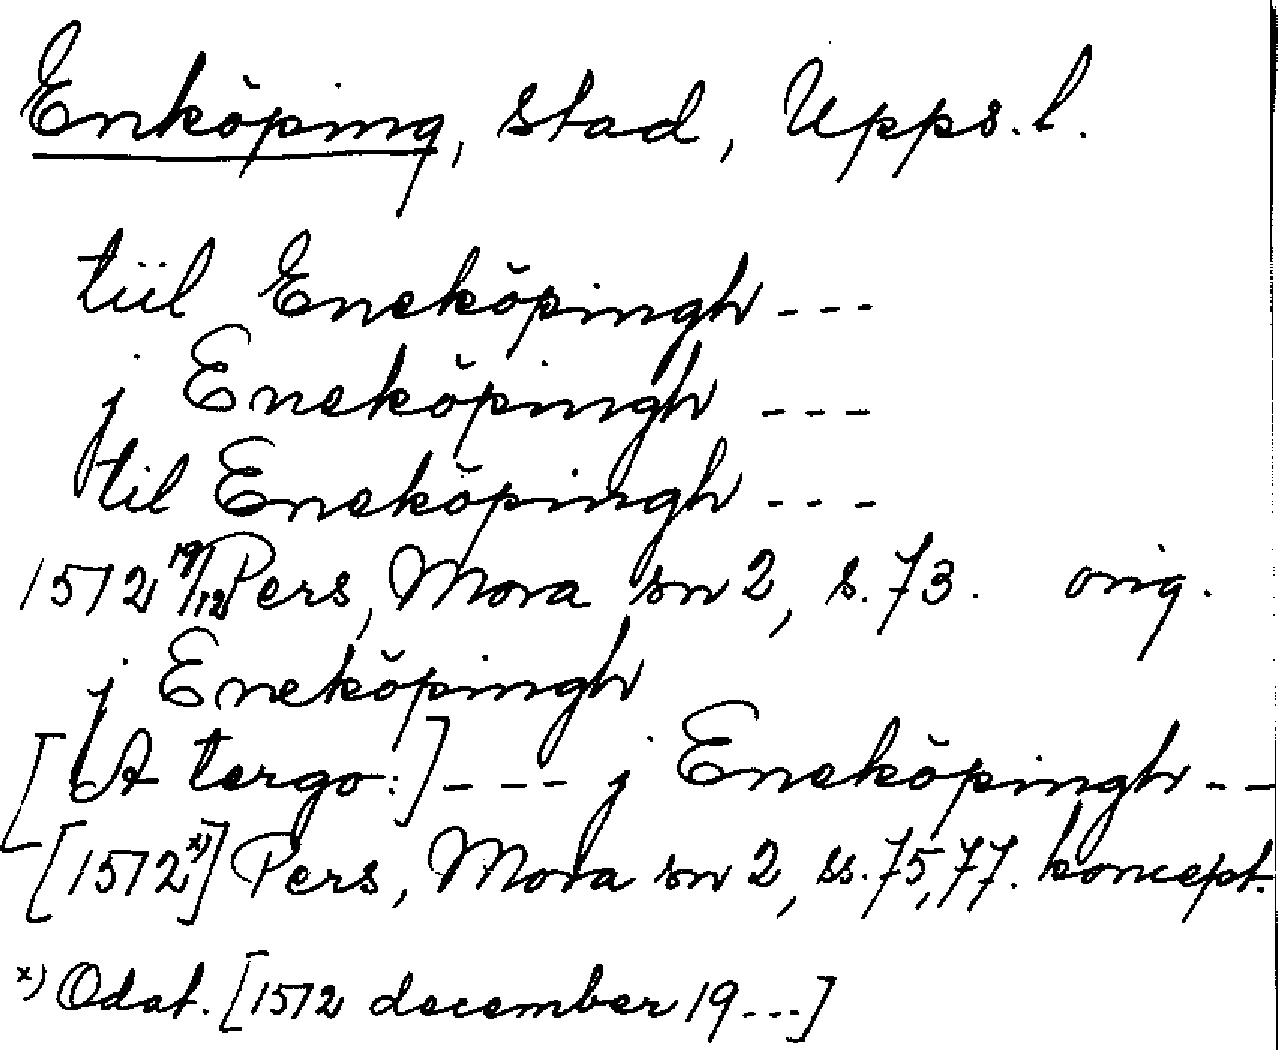 Enköping, stad, Upps. l.
tiil Eneköpingh ---
j Eneköpingh ---
til Eneköpingh ---
1572 19/12 Pers, Mora sn 2, s. 73. orig.
j Eneköpingh
[A tergo:] --- j Eneköpingh --
[1572 x)] Pers, Mora sn 2, ss. 75, 77. koncept.
x) Odat. [1572 december 19 ...]